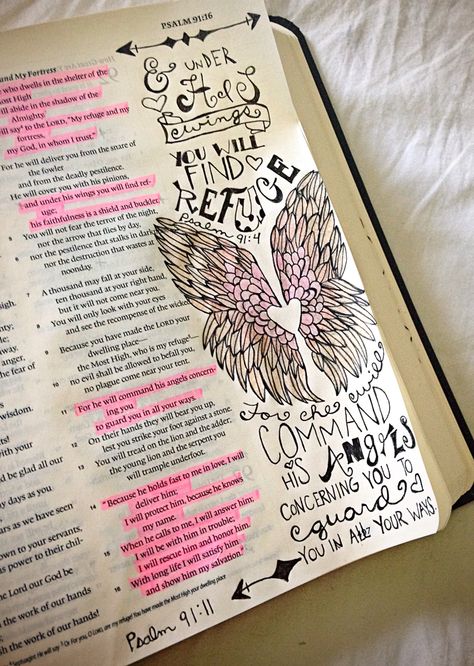 PSALM 91:16
and My Fortress
who dwells in the shelter of the
Most High
will abide in the shadow of the
Almighty.
will say to the LORD, "My refuge and my
fortress,
my God, in whom I trust."
For he will deliver you from the snare of
the fowler
and from the deadly pestilence.
He will cover you with his pinions,
and under his wings you will find ref-
uge;
his faithfulness is a shield and buckler.
5 You will not fear the terror of the night,
nor the arrow that flies by day,
6 nor the pestilence that stalks in dark
nor the destruction that wastes at
noonday.
7 A thousand may fall at your side,
ten thousand at your right hand,
but it will not come near you.
8 You will only look with your eyes
and see the recompense of the wicke
9 Because you have made the LORD your
dwelling place—
the Most High, who is my refuge—
10 no evil shall be allowed to befall you,
no plague come near your tent.
11 For he will command his angels concern-
ing you
to guard you in all your ways.
12 On their hands they will bear you up,
lest you strike your foot against a stone.
13 You will tread on the lion and the adder;
the young lion and the serpent you
will trample underfoot.
14 "Because he holds fast to me in love, I will
deliver him;
I will protect him, because he knows
my name.
15 When he calls to me, I will answer him;
I will be with him in trouble;
I will rescue him and honor him.
16 With long life I will satisfy him
and show him my salvation."
high.
wisdom.
with your
and be glad all our
days as you
ears as we have seen
own to your servants,
power to their chil-
the Lord our God be
the work of our hands
the work of our hands!
& UNDER
HIS
wings
YOU WILL
FIND
REFUGE
Psalm 91:4
For he will
COMMAND
HIS ANGELS
CONCERNING YOU TO
guard
YOU IN All YOUR WAYS.
Psalm 91:11